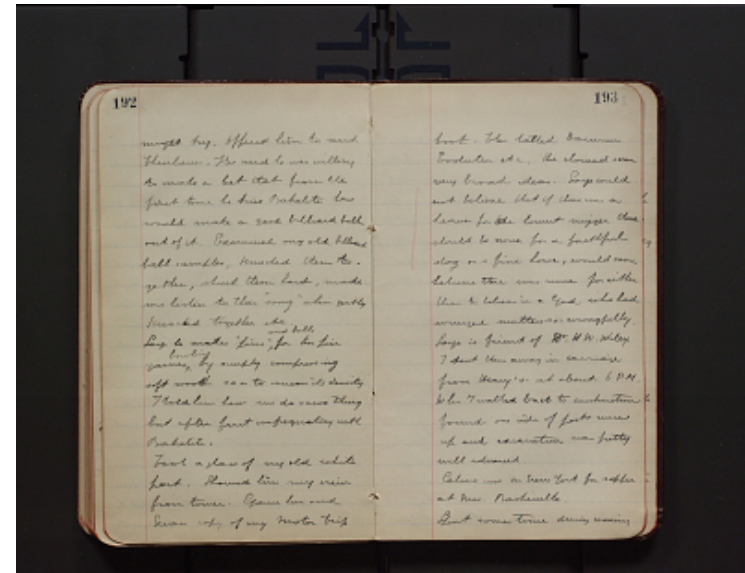 192
might try. Offered him to send
He said he was willing
to make a bet that from the
first time he tries Bakelite he
would make a good billiard ball
out of it. Examined my old billiard
ball samples, knocked them to-
gether, struck them hard, made
me listen to their "ring" when gently
knocked together etc.
and balls
Says he makes "pins", for ten pin
bowling
games, by simply compressing
soft wood so as to increase its density
I told him how we do same thing
but after first impregnating with
Bakelite.
Took a glass of my old white
port. Showed him my view
from tower. Gave him and
copy of my Motor Trip
193
book. He talked Darwin
Evolution etc, he showed some
very broad ideas. Says would
not believe that if there was a
heaven for the lowest there
should be none for a faithful
dog or a fine horse, would soon
believe there was none for either
than to believe in a God who had
arranged matters so wrongfully.
Says is friend of Dr. H. W. Wiley
I sent him away in carriage
from Henry's at about 6 P.M.
When I walked back to construction
found one side of posts were
up and excavation was pretty
well advanced.
Celine was in New York for supper
at Mrs.
Spent some time